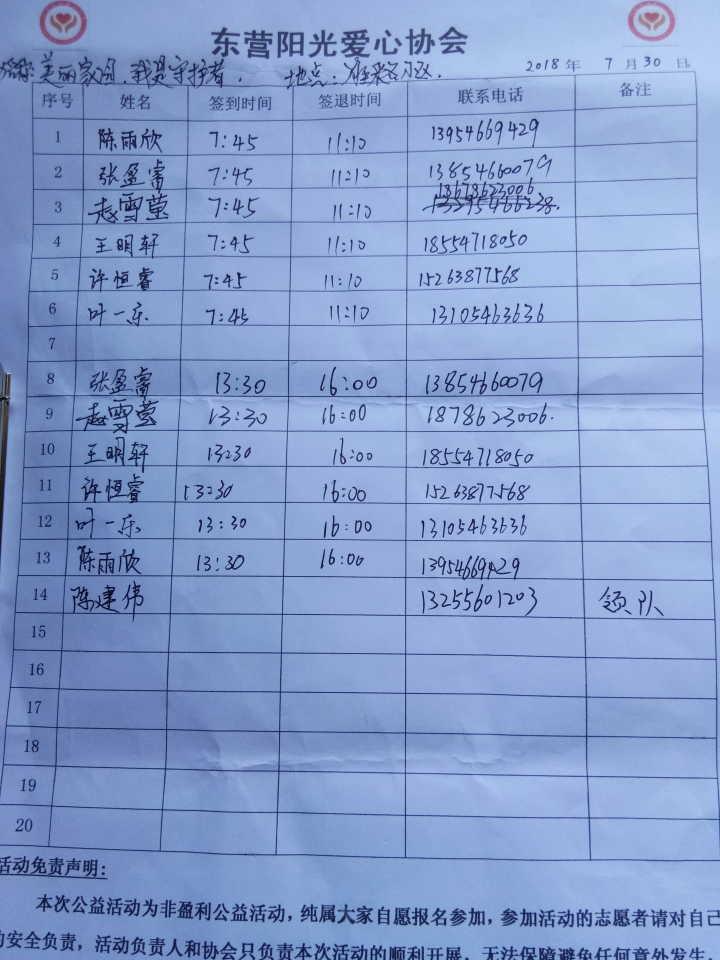 东营阳光爱心协会
美丽家园,我是守护者. 地点: 小区. 2018年 7月30日
序号 姓名 签到时间 签退时间 联系电话 备注
1 陈雨欣 7:45 11:10 13954669429
2 张盈睿 7:45 11:10 13854660079
18678623006
3 赵雪莹 7:45 11:10 13395466238.
4 王明轩 7:45 11:10 18554718050
5 许恒睿 7:45 11:10 15263877568
6 叶一乐 7:45 11:10 13105463636
7
8 张盈睿 13:30 16:00 13854660079
9 赵雪莹 13:30 16:00 1878623006.
10 王明轩 13:30 16:00 18554718050
11 许恒睿 13:30 16:00 15263877568
12 叶一乐 13:30 16:00 13105463636
13 陈雨欣 13:30 16:00 13954669429
14 陈建伟 13255601203 领队
15
16
17
18
19
20
活动免责声明:
本次公益活动为非盈利公益活动,纯属大家自愿报名参加,参加活动的志愿者请对自己
的安全负责,活动负责人和协会只负责本次活动的顺利开展,无法保障避免任何意外发生,